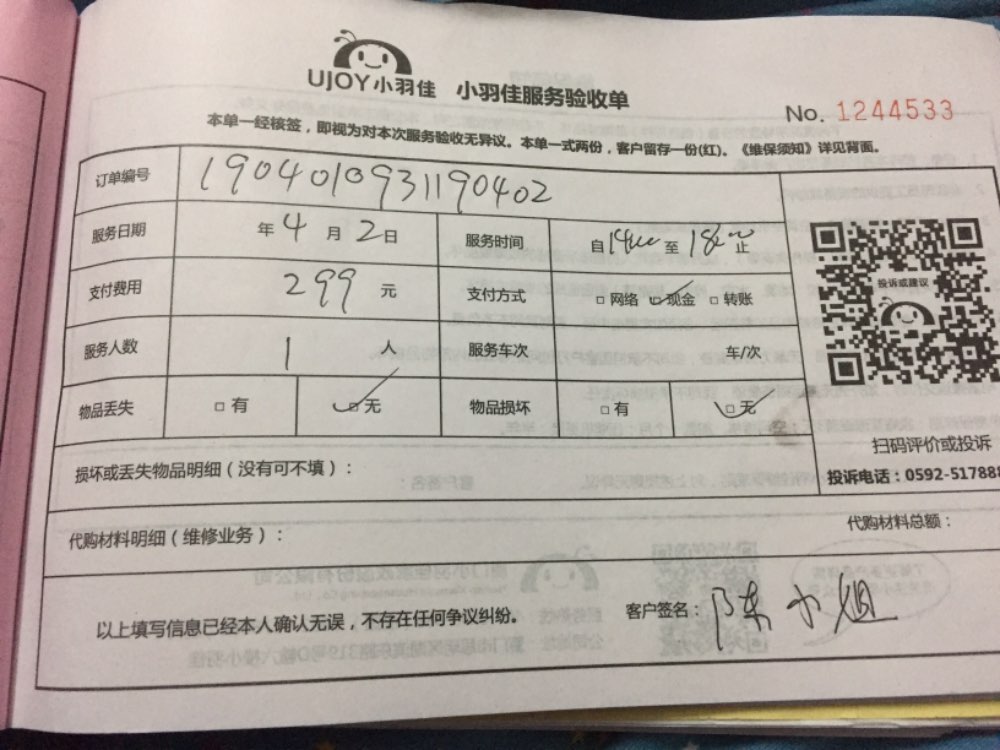 UJOY小羽佳 小羽佳服务验收单
No. 1244533
本单一经核签，即视为对本次服务验收无异议。本单一式两份，客户留存一份(红)。《维保须知》详见背面。
订单编号 1904010931190402
服务日期 年 4 月 2 日 服务时间 自 14:00 至 18:00 止
支付费用 299 元 支付方式 □ 网络 ☑ 现金 □ 转账
投诉或建议
服务人数 1 人 服务车次 车/次
物品丢失 □ 有 ☑ 无 物品损坏 □ 有 ☑ 无
扫码评价或投诉
损坏或丢失物品明细（没有可不填）：
投诉电话：0592-517888
代购材料明细（维修业务）：
代购材料总额：
以上填写信息已经本人确认无误，不存在任何争议纠纷。
客户签名：陈小姐